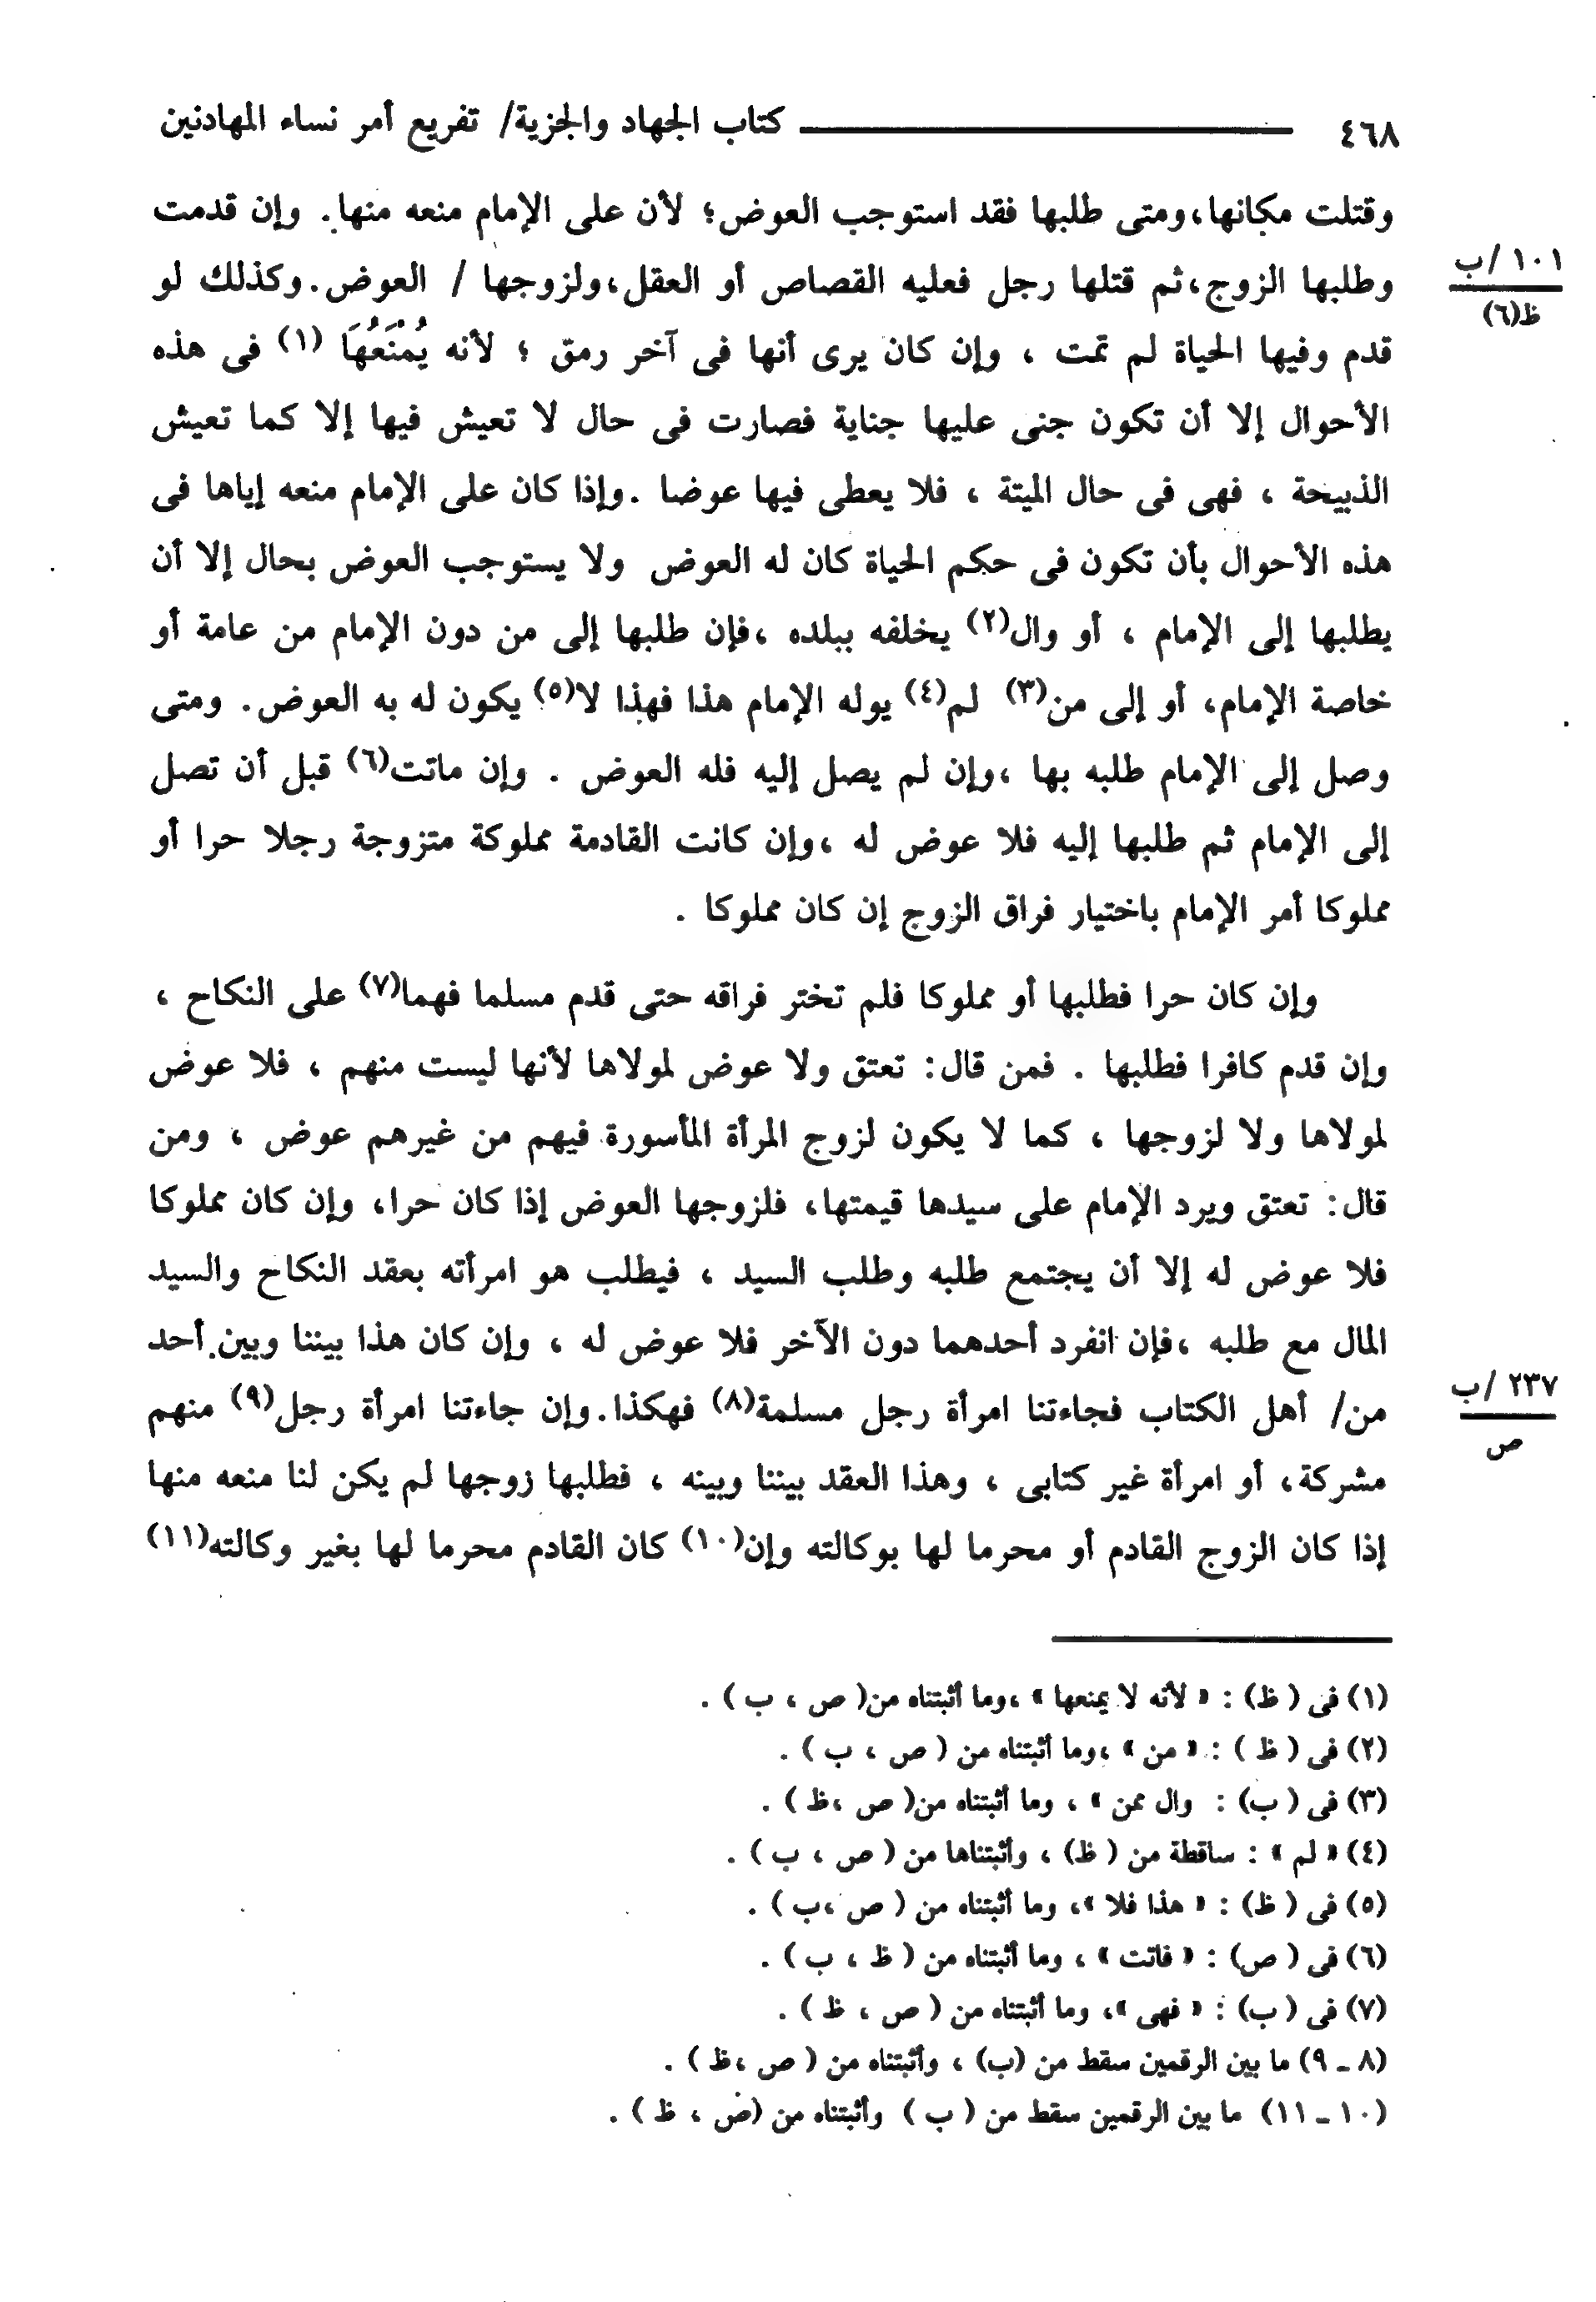 ٤٦٨ كتاب الجهاد والجزية/ تفريع أمر نساء المهادنين
وقتلت مكانها، ومتى طلبها فقد استوجب العوض؛ لأن على الإمام منعه منها. وإن قدمت
١٠١/ب
وطلبها الزوج، ثم قتلها رجل فعليه القصاص أو العقل، ولزوجها / العوض. وكذلك لو
ظ(٦)
قدم وفيها الحياة لم تمت ، وإن كان يرى أنها فى آخر رمق ؛ لأنه يُمْنَعُهَا (١) فى هذه
الأحوال إلا أن تكون جنى عليها جناية فصارت فى حال لا تعيش فيها إلا كما تعيش
الذبيحة ، فهى فى حال الميتة ، فلا يعطى فيها عوضا . وإذا كان على الإمام منعه إياها فى
هذه الأحوال بأن تكون فى حكم الحياة كان له العوض ولا يستوجب العوض بحال إلا أن
يطلبها إلى الإمام ، أو وال(٢) يخلفه ببلده ، فإن طلبها إلى من دون الإمام من عامة أو
خاصة الإمام، أو إلى من(٣) لم(٤) يوله الإمام هذا فهذا لا(٥) يكون له به العوض. ومتى
وصل إلى الإمام طلبه بها ، وإن لم يصل إليه فله العوض . وإن ماتت(٦) قبل أن تصل
إلى الإمام ثم طلبها إليه فلا عوض له ، وإن كانت القادمة مملوكة متزوجة رجلا حرا أو
مملوكا أمر الإمام باختيار فراق الزوج إن كان مملوكا .
وإن كان حرا فطلبها أو مملوكا فلم تختر فراقه حتى قدم مسلما فهما(٧) على النكاح ،
وإن قدم كافرا فطلبها . فمن قال: تعتق ولا عوض لمولاها لأنها ليست منهم ، فلا عوض
لمولاها ولا لزوجها ، كما لا يكون لزوج المرأة المأسورة فيهم من غيرهم عوض ، ومن
قال: تعتق ويرد الإمام على سيدها قيمتها، فلزوجها العوض إذا كان حرا، وإن كان مملوكا
فلا عوض له إلا أن يجتمع طلبه وطلب السيد ، فيطلب هو امرأته بعقد النكاح والسيد
المال مع طلبه ، فإن انفرد أحدهما دون الآخر فلا عوض له ، وإن كان هذا بيننا وبين أحد
٢٣٧/ب
من/ أهل الكتاب فجاءتنا امرأة رجل مسلمة(٨) فهكذا. وإن جاءتنا امرأة رجل(٩) منهم
ص
مشركة، أو امرأة غير كتابى ، وهذا العقد بيننا وبينه ، فطلبها زوجها لم يكن لنا منعه منها
إذا كان الزوج القادم أو محرما لها بوكالته وإن(١٠) كان القادم محرما لها بغير وكالته(١١)
(١) فى ( ظ) : « لأنه لا يمنعها » ، وما أثبتناه من( ص ، ب ) .
(٢) فى ( ظ ) : « من » ، وما أثبتناه من ( ص ، ب ) .
(٣) فى ( ب) : وال ممن » ، وما أثبتناه من( ص ، ظ ) .
(٤) « لم » : ساقطة من ( ظ) ، وأثبتناها من ( ص ، ب ) .
(٥) فى ( ظ) : « هذا فلا »، وما أثبتناه من ( ص ، ب ) .
(٦) فى ( ص) : « فاتت » ، وما أثبتناه من ( ظ ، ب ) .
(٧) فى ( ب) : « فهى »، وما أثبتناه من ( ص ، ظ ) .
(٨ ـ ٩) ما بين الرقمين سقط من (ب) ، وأثبتناه من ( ص ، ظ ) .
(١٠ ـ ١١) ما بين الرقمين سقط من ( ب ) وأثبتناه من (ص ، ظ ) .